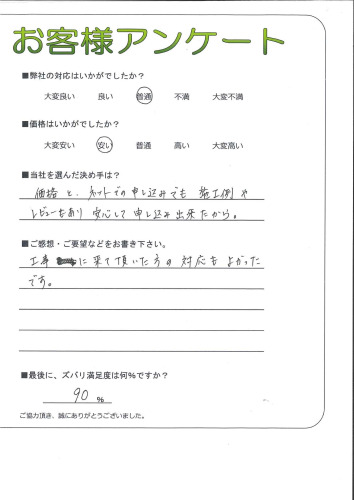 お客様アンケート
■弊社の対応はいかがでしたか？
大変良い　良い　普通　不満　大変不満
■価格はいかがでしたか？
大変安い　安い　普通　高い　大変高い
■当社を選んだ決め手は？
価格と、ネットでの申し込みでも施工例や
レビューもあり安心して申し込み出来たから。
■ご感想・ご要望などをお書き下さい。
工事に来て頂いた方の対応もよかった
です。
■最後に、ズバリ満足度は何%ですか？
90 %
ご協力頂き、誠にありがとうございました。